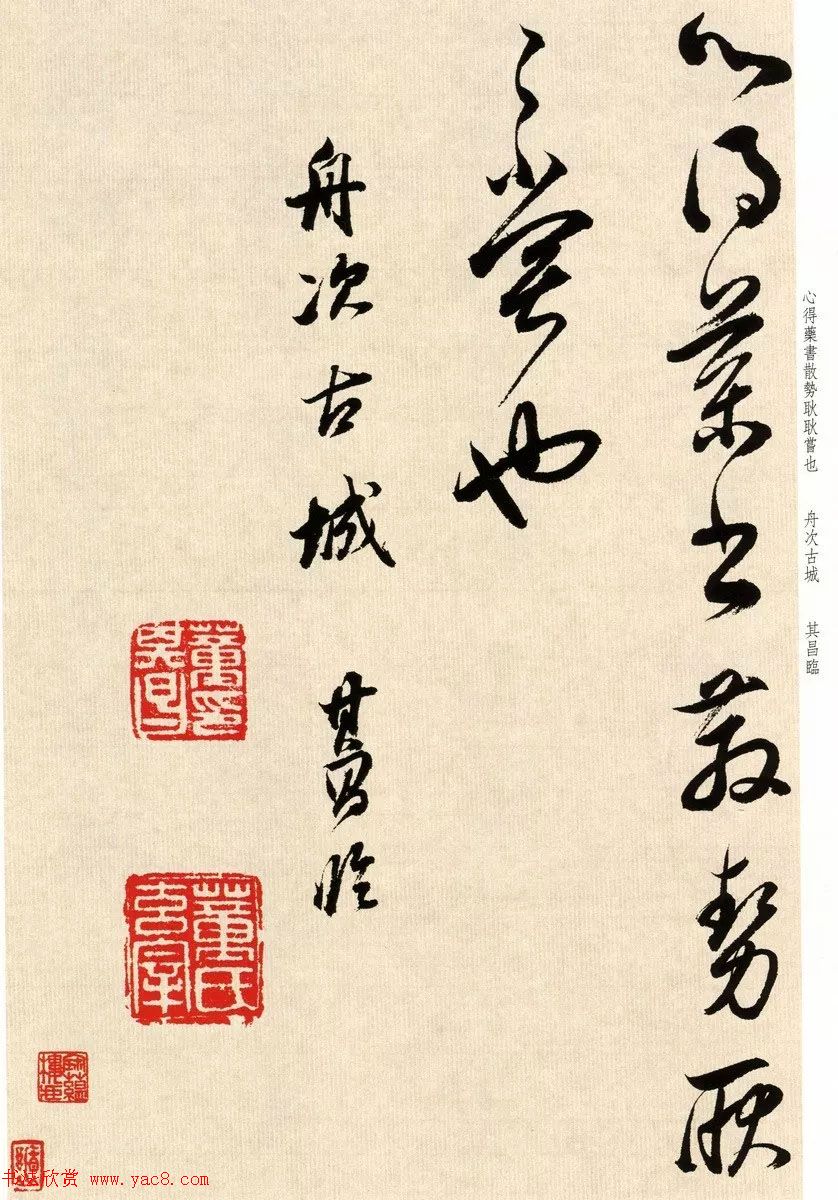 心得藥書散勢耿耿嘗也 舟次古城 其昌臨
心得藥書散勢耿
〻嘗也
舟次古城 其昌臨
董印其昌
董氏玄宰
书法欣赏 www.yac8.com